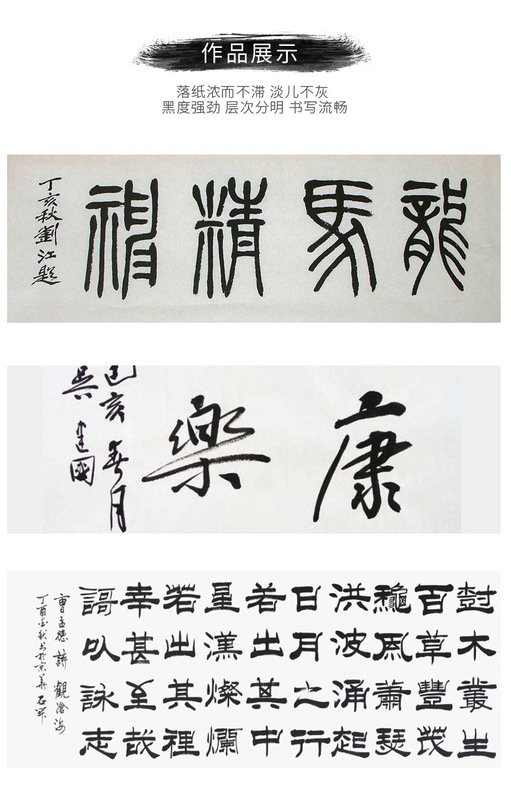 作品展示
落纸浓而不滞 淡儿不灰
黑度强劲 层次分明 书写流畅
龍馬精神
丁亥秋劉江題
康樂
己亥春月
吳建國
樹木叢生
百草豐茂
龝風蕭瑟
洪波涌起
日月之行
若出其中
星漢燦爛
若出其裡
幸甚至哉
謌以詠志
曹孟德詩觀滄海
丁酉金秋书於京華石